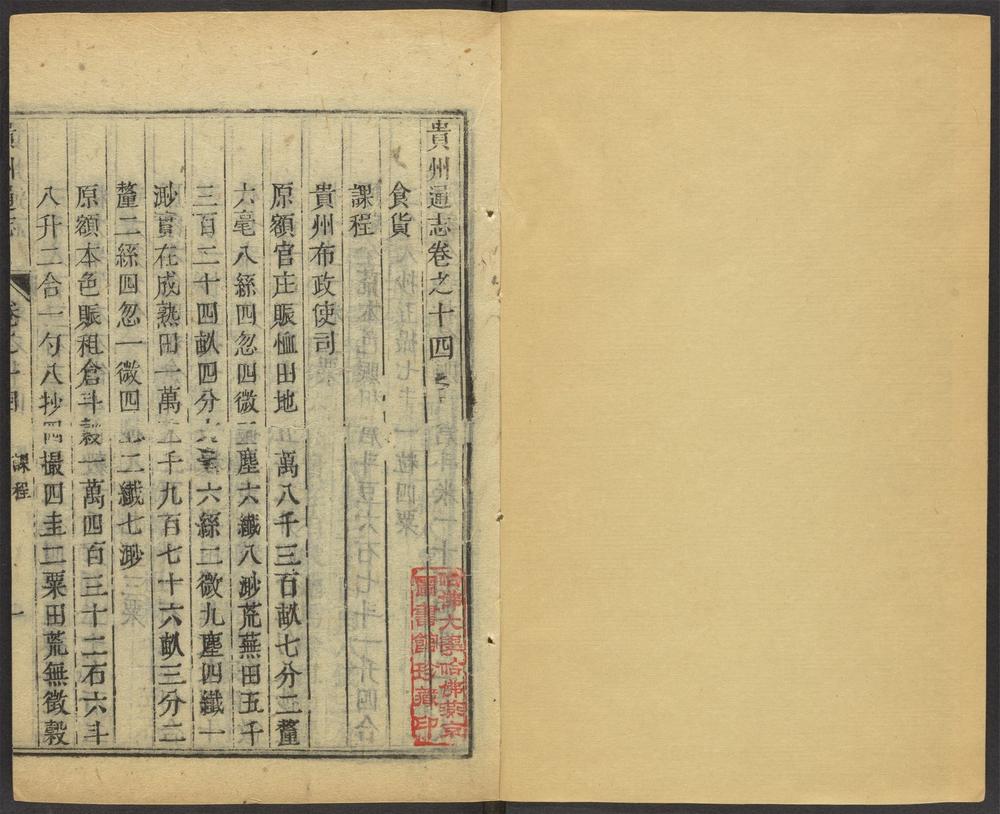 貴州通志卷之十四
食貨
課程
貴州布政使司
原額官庄賑恤田地一萬八千三百畝七分二釐
六毫八絲四忽四微三塵六纖八渺荒蕪田五千
三百二十四畝四分六毫六絲二微九塵四纖一
渺實在成熟田一萬二千九百七十六畝三分二
釐二絲四忽一微四塵二纖七渺
原額本色賑租倉斗穀一萬四百三十二石六斗
八升二合一勺八抄四撮四圭二粟田荒無徵穀
貴州通志
卷之十四
課程
一
哈佛大學哈佛燕京
圖書館珍藏印